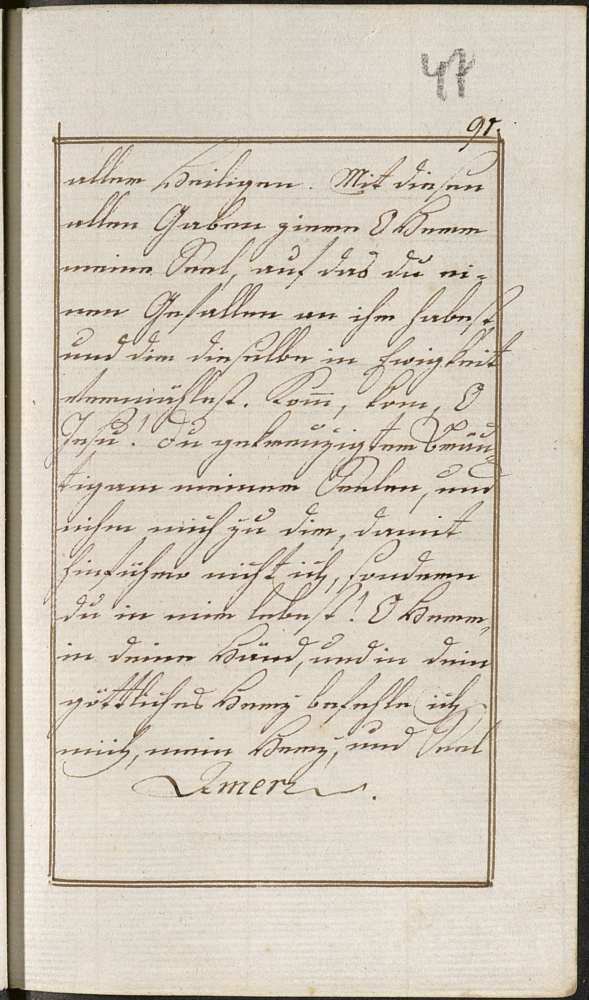 47
91.
aller Heiligen. Mit diesen
allen Gaben ziere O Herr
meine Seel, auf das du ei-
nen Gefallen an ihr habest,
und dir dieselbe in Ewigkeit
vermählest. Kom̅, kom, O
Jesu! du gekreuzigter Bräu-
tigam meiner Seelen, und
nihm mich zu dir, damit
hinführo nicht ich, sondern
du in mir lebest! O Herr,
in deine Händ, und in dein
göttliches Herz befehle ich
mich, mein Herz, und Seel
Amen.